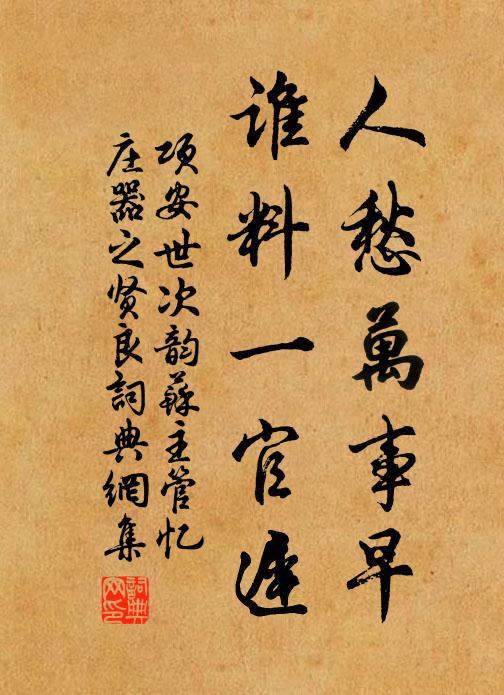 人愁萬事早
誰料一官遲
項安世次韵蘇主管忆
庄器之贤良詞典網集
詞典網印